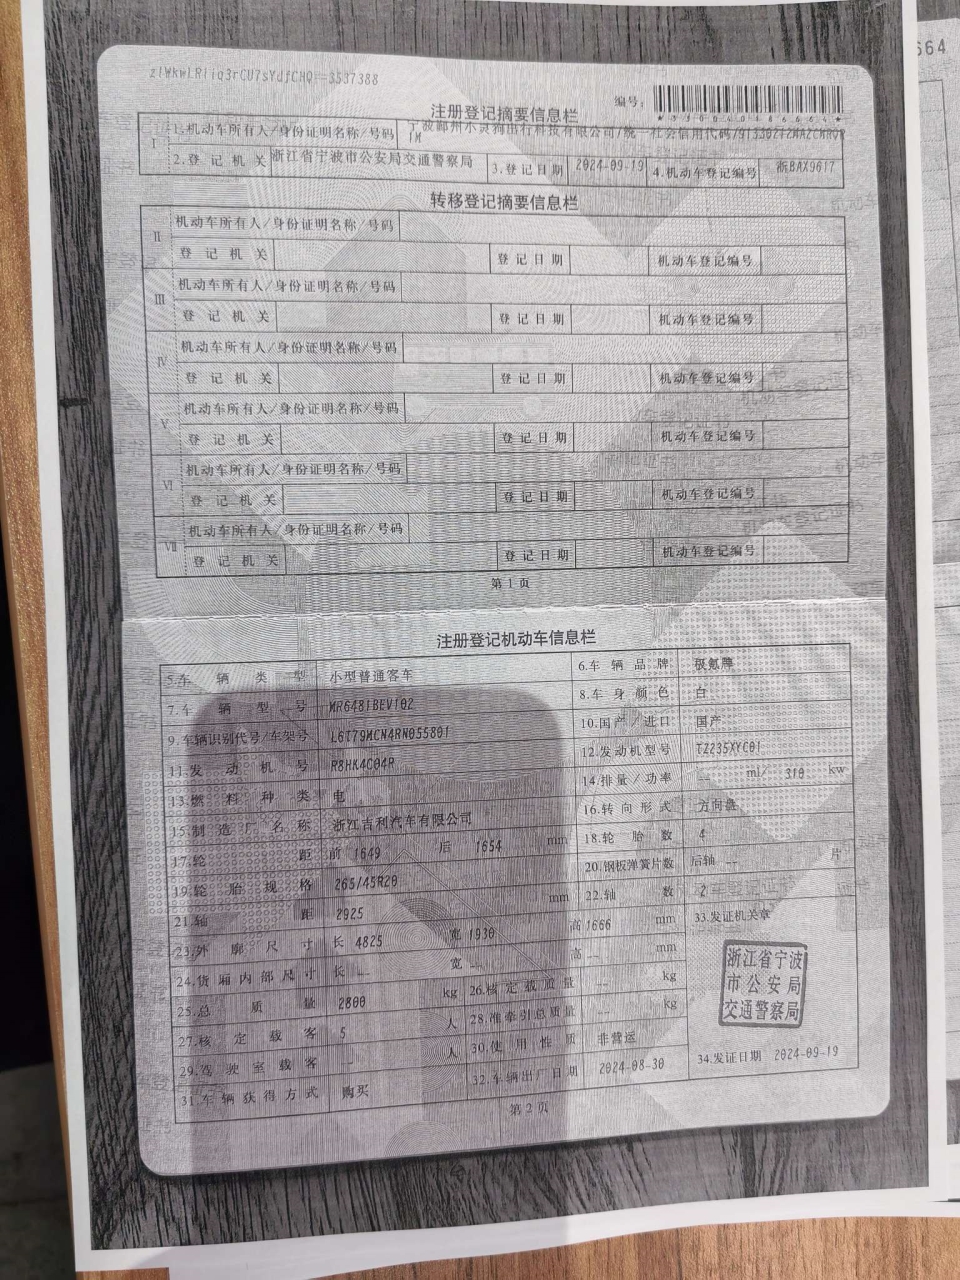 zlWkwLRliq3rCU7sYdfCHQ==3537388
编号:
注册登记摘要信息栏
I 1.机动车所有人/身份证明名称/号码 宁波鄞州小灵狗出行科技有限公司/统一社会信用代码/
2.登记机关 浙江省宁波市公安局交通警察局 3.登记日期 2024-09-19 4.机动车登记编号 浙BAX9617
转移登记摘要信息栏
II 机动车所有人/身份证明名称/号码
登记机关 登记日期 机动车登记编号
III 机动车所有人/身份证明名称/号码
登记机关 登记日期 机动车登记编号
IV 机动车所有人/身份证明名称/号码
登记机关 登记日期 机动车登记编号
V 机动车所有人/身份证明名称/号码
登记机关 登记日期 机动车登记编号
VI 机动车所有人/身份证明名称/号码
登记机关 登记日期 机动车登记编号
VII 机动车所有人/身份证明名称/号码
登记机关 登记日期 机动车登记编号
第1页
注册登记机动车信息栏
5.车辆类型 小型普通客车 6.车辆品牌 极氪牌
7.车辆型号 MR6481BEV102 8.车身颜色 白
9.车辆识别代号/车架号 L6T79MCN4RN055801 10.国产/进口 国产
11.发动机号 R8HK4C04R 12.发动机型号 TZ235XYC01
13.燃料种类 电 14.排量/功率 -- ml/ 310 kw
15.制造厂名称 浙江吉利汽车有限公司 16.转向形式 方向盘
17.轮距 前 1649 后 1654 mm 18.轮胎数 4
19.轮胎规格 265/45R20 20.钢板弹簧片数 后轴 -- 片
21.轴距 2925 mm 22.轴数 2
23.外廓尺寸 长 4825 宽 1930 高 1666 mm 33.发证机关章
24.货厢内部尺寸 长 -- 宽 -- 高 -- mm
25.总质量 2800 kg 26.核定载质量 -- kg
27.核定载客 5 人 28.准牵引总质量 -- kg
29.驾驶室载客 -- 人 30.使用性质 非营运
31.车辆获得方式 购买 32.车辆出厂日期 2024-08-30 34.发证日期 2024-09-19
浙江省宁波
市公安局
交通警察局
第2页
664